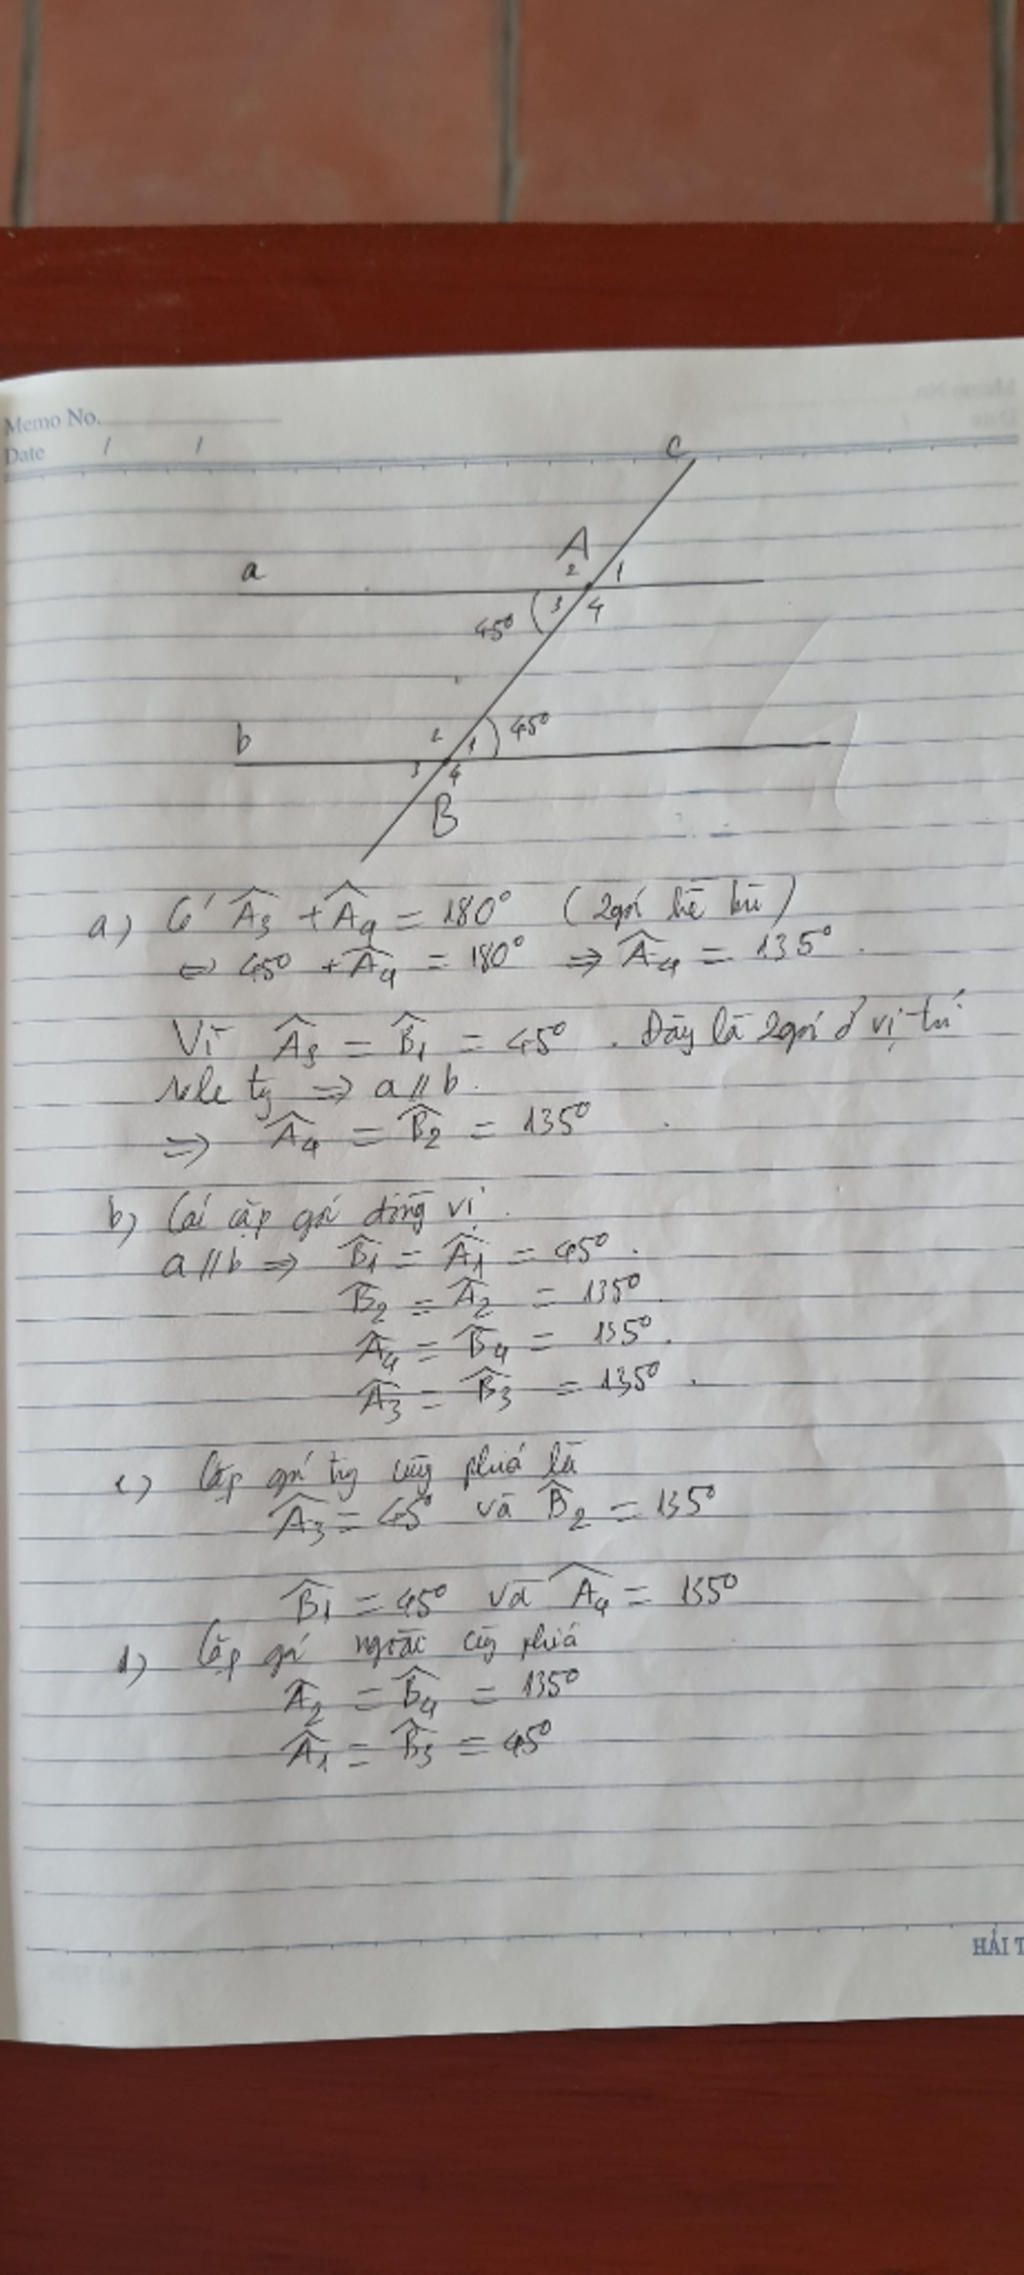 Memo No.
Date / /
C
A
a
2 1
3 4
45°
b
2 1
45°
3 4
B
a) Có Â3 + Â4 = 180° (2 góc kề bù)
⇔ 45° + Â4 = 180° ⇒ Â4 = 135°.
Vì Â3 = B̂1 = 45°. Đây là 2 góc ở vị trí
sole tg ⇒ a // b.
⇒ Â4 = B̂2 = 135°
b) Các cặp góc đồng vị.
a // b ⇒ B̂1 = Â1 = 45°.
B̂2 = Â2 = 135°.
Â4 = B̂4 = 135°.
Â3 = B̂3 = 135°.
c) Cặp góc tg cùng phía là
Â3 = 45° và B̂2 = 135°
B̂1 = 45° và Â4 = 135°
d) Cặp góc ngoài cùng phía
Â2 = B̂4 = 135°
Â1 = B̂3 = 45°
HẢI T